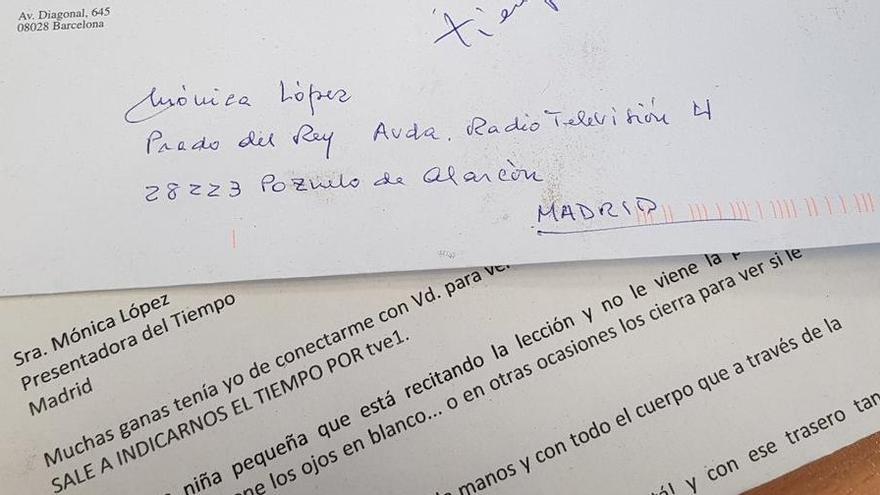 Av. Diagonal, 645
08028 Barcelona
Mónica López
Prado del Rey Avda. Radio Televisión 4
28223 Pozuelo de Alarcòn
MADRID
Sra. Mónica López
Presentadora del Tiempo
Madrid
Muchas ganas tenía yo de conectarme con Vd. para
SALE A INDICARNOS EL TIEMPO POR tve1.
niña pequeña que está recitando la lección y no le viene la
los ojos en blanco... o en otras ocasiones los cierra para ver si le
manos y con todo el cuerpo que a través de la
y con ese trasero